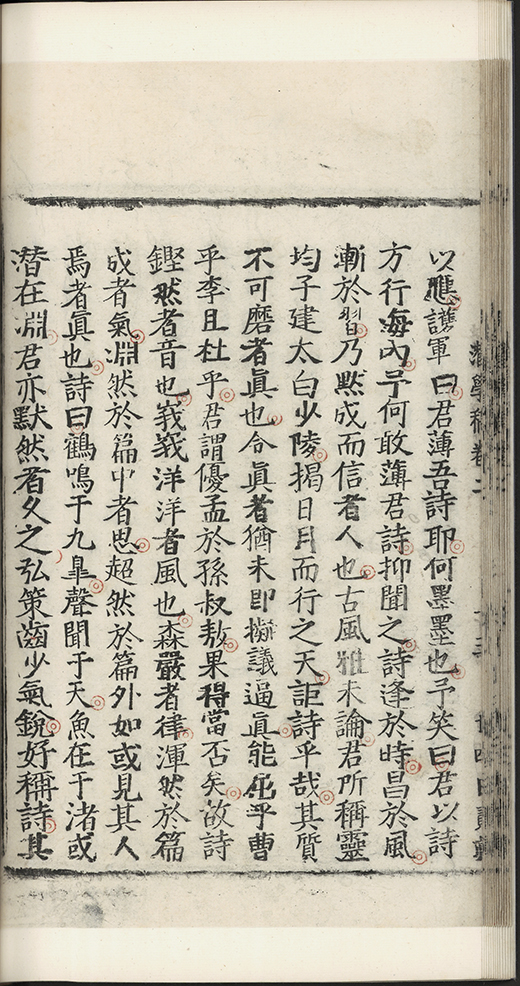 以應護軍曰君薄吾詩耶何墨墨也予笑曰君以詩
方行海內予何敢薄君詩抑聞之詩逢於時昌於風
漸於習乃黙成而信者人也古風雅未論君所稱靈
均子建太白少陵揭日月而行之天詎詩乎哉其質
不可磨者眞也合眞者猶未即擬議逼眞能屈乎曹
乎李且杜乎君謂優孟於孫叔敖果得當否矣故詩
鏗然者音也峩峩洋洋者風也森嚴者律渾然於篇
成者氣淵然於篇中者思超然於篇外如或見其人
焉者眞也詩曰鶴鳴于九臯聲聞于天魚在于渚或
潛在淵君亦默然者久之弘策齒少氣銳好稱詩其